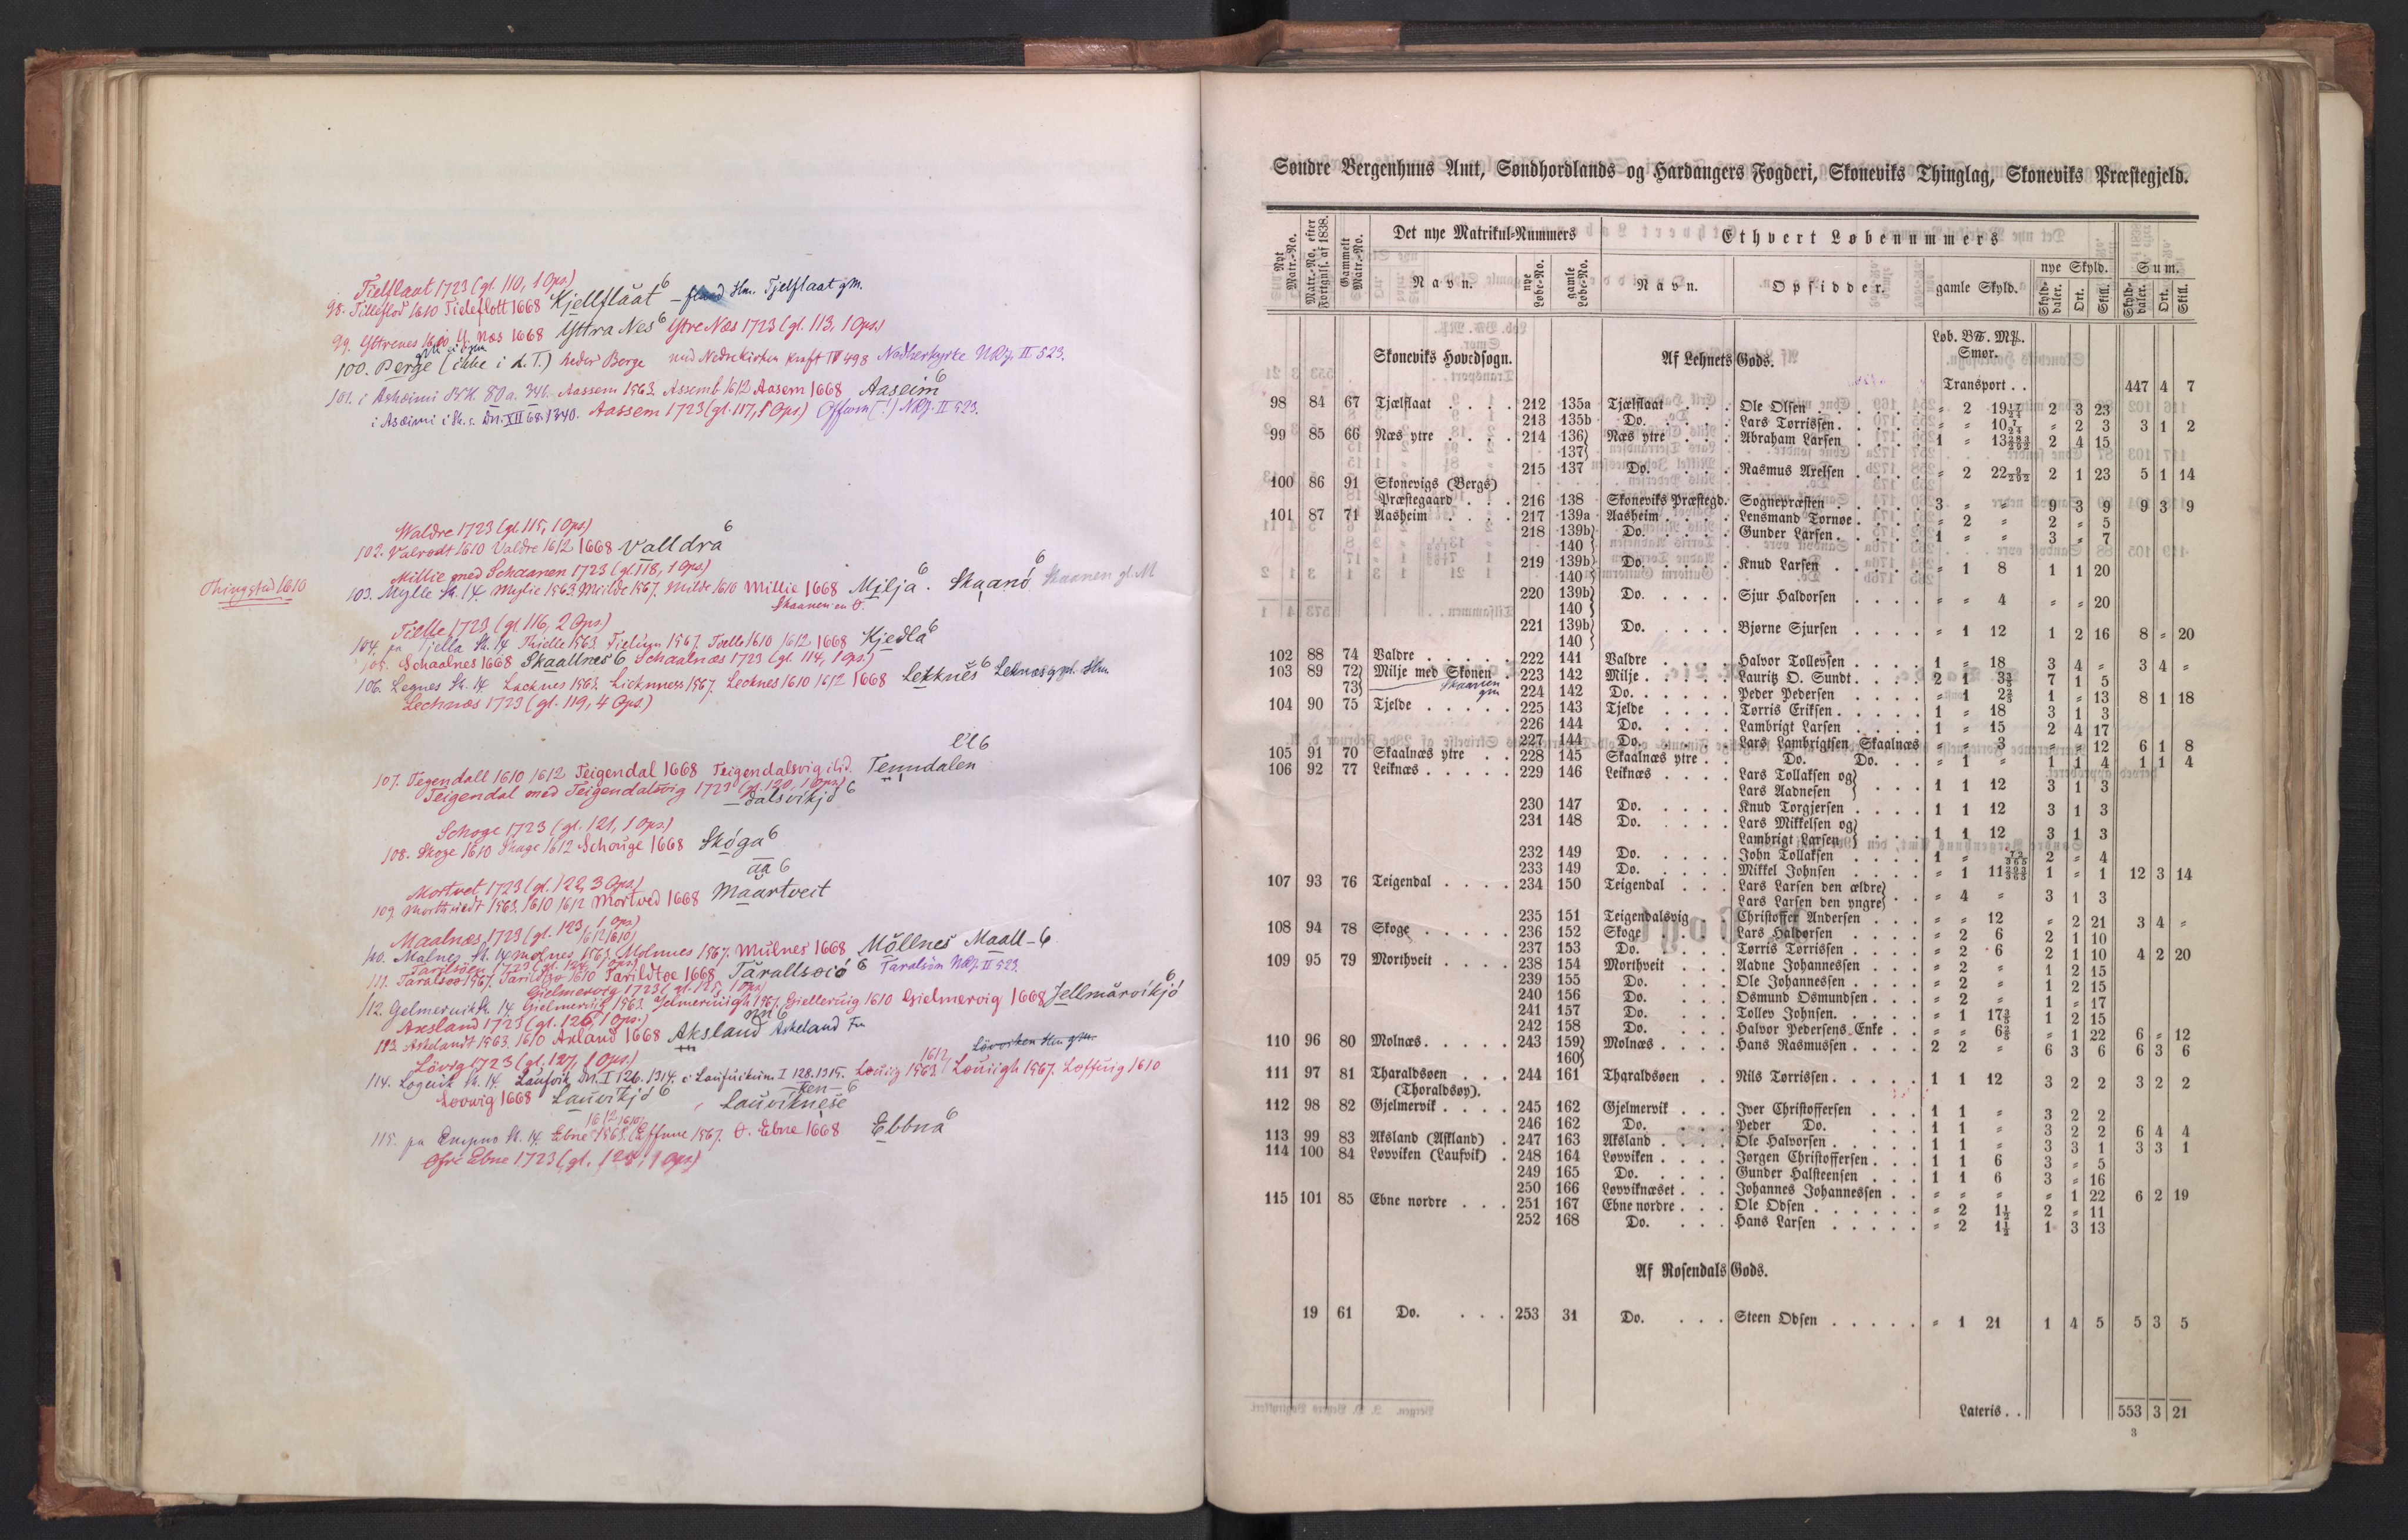 Tielflaat 1723 (gl. 110, 1 Ops)
98. Tilleflod 1610 Tieleflott 1668 Kjellflåat 6 Hm. Tjelflaat gm.
99. Yttrenes 1610 Y. Nœs 1668 Yttra Nes 6 Ytre Næs 1723 (gl. 113, 1 Ops)
100. Berge (ikke i D.T.) heder Berge med Nedrekirken Kraft IV 498 Nedherkyrke NRJ. II 523.
101. i Askæimi BK. 80a. 34b. Aassem 1563. Assemb 1612 Aasem 1668 Aaseim 6
i Asæimi i Sk. s. Dn. XII 68. 1340. Aassem 1723 (gl. 117, 1 Ops) Offsem (!) NRJ. II 523.
Waldre 1723 (gl. 115, 1 Ops)
102. Valrodt 1610 Valdre 1612 1668 Valldra 6
Millie med Schaanen 1723 (gl. 118, 1 Ops)
Thingsted 1610
103. Mylle Sk. 14. Mylie 1563. Meilde 1567. Milde 1610 Millie 1668 Milja 6. Skaanö 6 Skaanen gl. M
Skaanen en Ø.
Tielle 1723 (gl. 116, 2 Ops)
104. pa Tjella Sk. 14. Thielle 1563. 1567. Tielle 1610 1612 1668 Kjedla 6
105. Schaalnes 1668 Skaallnes 6 Schaalnæs 1723 (gl. 114, 1 Ops.)
106. Legnes Sk. 14. Lecknes 1563. Licknness 1567. Lecknes 1610 1612 1668 Lekknes 6 Leknæs Hm.
Lechnæs 1723 (gl. 119, 4 Ops)
107. Tegendall 1610 1612 Teigendal 1668 Teigendalsvig ibid. Tenndalen
Teigendal med Teigendalsvig 1723 (gl. 120, 1 Ops)
– dalsvikjo 6
Schoge 1723 (gl. 121, 1 Ops)
108. Skoge 1610 Skage 1612 Schouge 1668 Skóga 6
aa 6
Mortvet 1723 (gl. 122, 3 Ops)
109. Morthuedt 1563. 1610 1612 Mortved 1668 Maartveit
Maalnæs 1723 (gl. 123, 1 Ops)
110. Malnes Sk. 14 Molnes 1563. Molnnes 1567. Mulnes 1668 Möllnes Maall- 6
111. Taralsøø 1567. 1610 Tarildtøe 1668 Tarallsoió 6 Taralsøn NRJ. II 523.
Gielmervig 1723 (gl. 125, 1 Ops)
112. Gelmeruik Sk. 14 Gielmeruig 1563. Jelmeruigh 1567. Gielleruig 1610 Gielmervig 1668 Jellmarvikjó 6
Axsland 1723 (gl. 126, 1 Ops.)
113. Askelandt 1563. 1610 Axland 1668 Aksland Askeland Fn
Lövig 1723 (gl. 127, 1 Ops.)
114. Logeuik Sk. 14. Laufvik Dn. I 126. 1314. i Laufuikum. I 128. 1315. Louig 1563. 1612 Louigh 1567. Loffuig 1610
Lovvig 1668 Lauvikjó 6 Lauviknese
115. pa Sk. 14. Ebne 1563. Effnne 1567. O. Ebne 1668 Ebbna 6
Øfre Ebne 1723 (gl. 128, 1 Ops)
Søndre Bergenhuus Amt, Søndhordlands og Hardangers Fogderi, Skoneviks Thinglag, Skoneviks Præstegjeld.
Nyt Matr.-No. | Matr.-No. efter Forignsf. af 1838. | Gammelt Matr.-No. | Det nye Matrikul-Nummers | Ethvert Løbenummers
Navn. | nye Løbe-No. | gamle Løbe-No. | Navn. | Opsidder. | gamle Skyld. | nye Skyld. | Sum.
Skylddaler. | Ort. | Skill. | Skylddaler. | Ort. | Skill.
Skoneviks Hovedsogn. Af Lehnets Gods. Løb. B℔. M℔. Smør.
Transport . . 447 4 7
98 84 67 Tjælflaat . . . . 212 135a Tjælflaat . . . Ole Olsen . . . . . . " 2 19 17/24 2 3 23
213 135b Do. . . . . Lars Torrissen. . . . . " " 10 7/24 " 2 3 3 1 2
99 85 66 Næs ytre . . . . 214 136} 137} Næs ytre . . . Abraham Larsen . . . . 1 " 13 283/292 2 4 15
215 137 Do. . . . . Rasmus Arelsen . . . . " 2 22 9/292 2 1 23 5 1 14
100 86 91 Skonevigs (Bergs)
Præstegaard . . . 216 138 Skoneviks Præstegd. Sognepræsten . . . . . 3 " " 9 3 9 9 3 9
101 87 71 Aasheim . . . . 217 139a Aasheim . . . . Lensmand Tornøe . . . . " 2 " 2 " 5
218 139b} 140} Do. . . . . Gunder Larsen . . . . . 1 " " 3 " 7
219 139b} 140} Do. . . . . Knud Larsen . . . . . " 1 8 1 1 20
220 139b} 140} Do. . . . . Sjur Haldorsen . . . . " " 4 " " 20
221 139b} 140} Do. . . . . Bjørne Sjursen . . . . " 1 12 1 2 16 8 " 20
102 88 74 Valdre . . . . . . 222 141 Valdre . . . . Halvor Tollevsen . . . . 1 " 18 3 4 " 3 4 "
103 89 72} 73} Milje med Skonen . 223 142 Milje . . . . . Lauritz O. Sundt . . . . 2 1 3 3/5 7 1 5
Skaanen gm
224 142 Do. . . . . . Peder Pedersen . . . . " 1 2 2/5 1 " 13 8 1 18
104 90 75 Tjelde . . . . . 225 143 Tjelde . . . . Torris Eriksen . . . . . 1 " 18 3 1 3
226 144 Do. . . . . Lambrigt Larsen . . . . 1 " 15 2 4 17
227 144 Do. . . . . Lars Lambrigtsen Skaalnæs " " 3 " " 12 6 1 8
105 91 70 Skaalnæs ytre . . 228 145 Skaalnæs ytre . . Do. Do. . . . " 1 " 1 1 4 1 1 4
106 92 77 Leiknæs . . . . . 229 146 Leiknæs . . . . Lars Tollaksen og}
Lars Aadnesen } . . . 1 1 12 3 1 3
230 147 Do. . . . . Knud Torgjersen . . . . 1 1 12 3 1 3
231 148 Do. . . . . Lars Mikkelsen og}
Lambrigt Larsen } . . . 1 1 12 3 1 3
232 149 Do. . . . . John Tollaksen . . . . 1 " 72/365 2 " 4
233 149 Do. . . . . Mikkel Johnsen . . . . " 1 11 293/365 1 " 1 12 3 14
107 93 76 Teigendal . . . . 234 150 Teigendal . . . Lars Larsen den ældre}
Lars Larsen den yngre} . . " 4 " 3 1 3
235 151 Teigendalsvig . . Christoffer Andersen . . . " " 12 " 2 21 3 4 "
108 94 78 Skoge . . . . . 236 152 Skoge . . . . Lars Haldorsen . . . . " 2 6 2 1 10
237 153 Do. . . . . Torris Torrissen . . . . " 2 6 2 1 10 4 2 20
109 95 79 Morthveit . . . . 238 154 Morthveit . . . Aadne Johannessen . . . " 2 " 1 2 15
239 155 Do. . . . . Ole Johannessen . . . . " 2 " 1 2 15
240 156 Do. . . . . Osmund Osmundsen . . . " 2 " 1 " 17
241 157 Do. . . . . Tollev Johnsen. . . . . 1 17 3/5 1 2 15
242 158 Do. . . . . Halvor Pedersens Enke . . " " 6 2/5 " 1 22 6 " 12
110 96 80 Molnæs . . . . . 243 159} 160} Molnæs . . . . Hans Rasmussen . . . . 2 2 " 6 3 6 6 3 6
111 97 81 Tharaldsøen . . . 244 161 Tharaldsøen . . Nils Torrissen . . . . . 1 1 12 3 2 2 3 2 2
(Thoraldsøy).
112 98 82 Gjelmervik . . . . 245 162 Gjelmervik . . . Iver Christoffersen . . . 1 1 " 3 2 2
246 162 Do. . . . . Peder Do. . . . . 1 1 " 3 2 2 6 4 4
113 99 83 Aksland (Askland) . 247 163 Aksland . . . . Ole Halvorsen . . . . . 1 1 " 3 3 1 3 3 1
114 100 84 Lovviken (Laufvik) . 248 164 Lovviken . . . . Jørgen Christoffersen . . . 1 1 6 3 " 5
249 165 Do. . . . . Gunder Halsteensen . . . 1 1 6 3 " 16
250 166 Lovviknæset . . . Johannes Johannessen . . " " " " 1 22 6 2 19
115 101 85 Ebne nordre . . . 251 167 Ebne nordre . . . Ole Odsen . . . . . . " 2 1 1/2 2 " 11
252 168 Do. . . . Hans Larsen . . . . . " 2 1 1/2 1 3 13
Af Rosendals Gods.
19 61 Do. . . . 253 31 Do. . . . Steen Odsen . . . . . " 1 21 1 4 5 5 3 5
Lateris . . 553 3 21
3